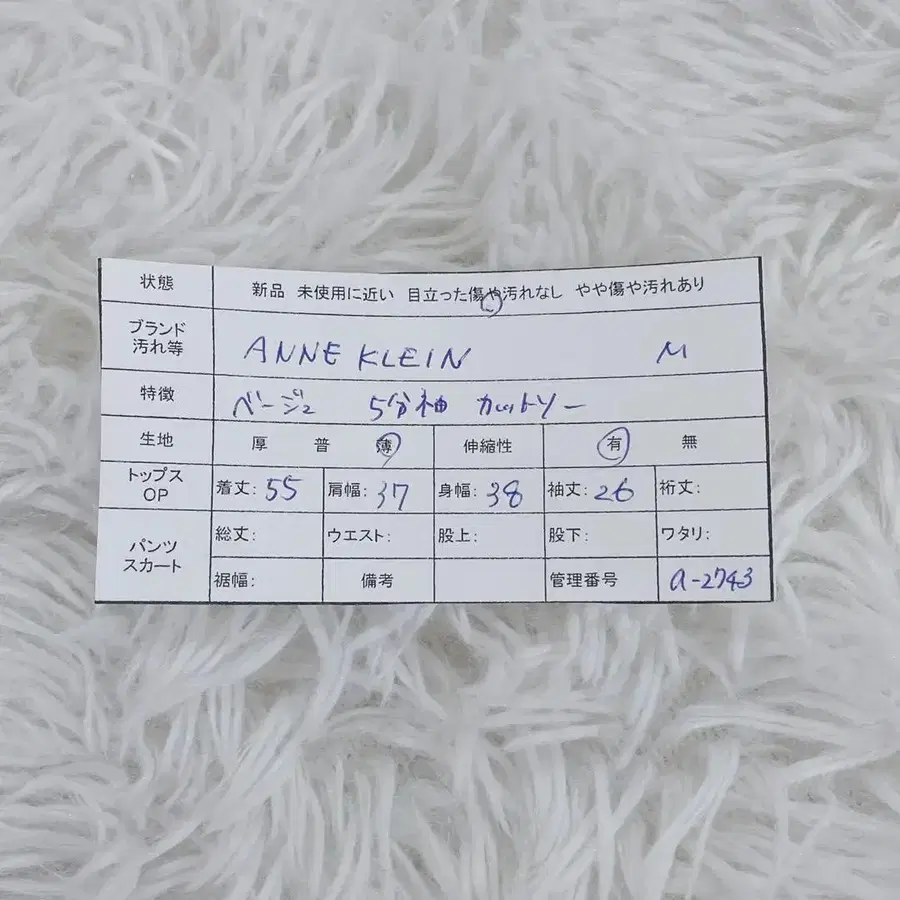 状態 新品 未使用に近い 目立った傷や汚れなし やや傷や汚れあり
ブランド
汚れ等 ANNE KLEIN M
特徴 ベージュ 5分袖 カットソー
生地 厚 普 薄 伸縮性 有 無
トップス
OP 着丈: 55 肩幅: 37 身幅: 38 袖丈: 26 裄丈:
パンツ
スカート 総丈: ウエスト: 股上: 股下: ワタリ:
裾幅: 備考 管理番号 a-2743